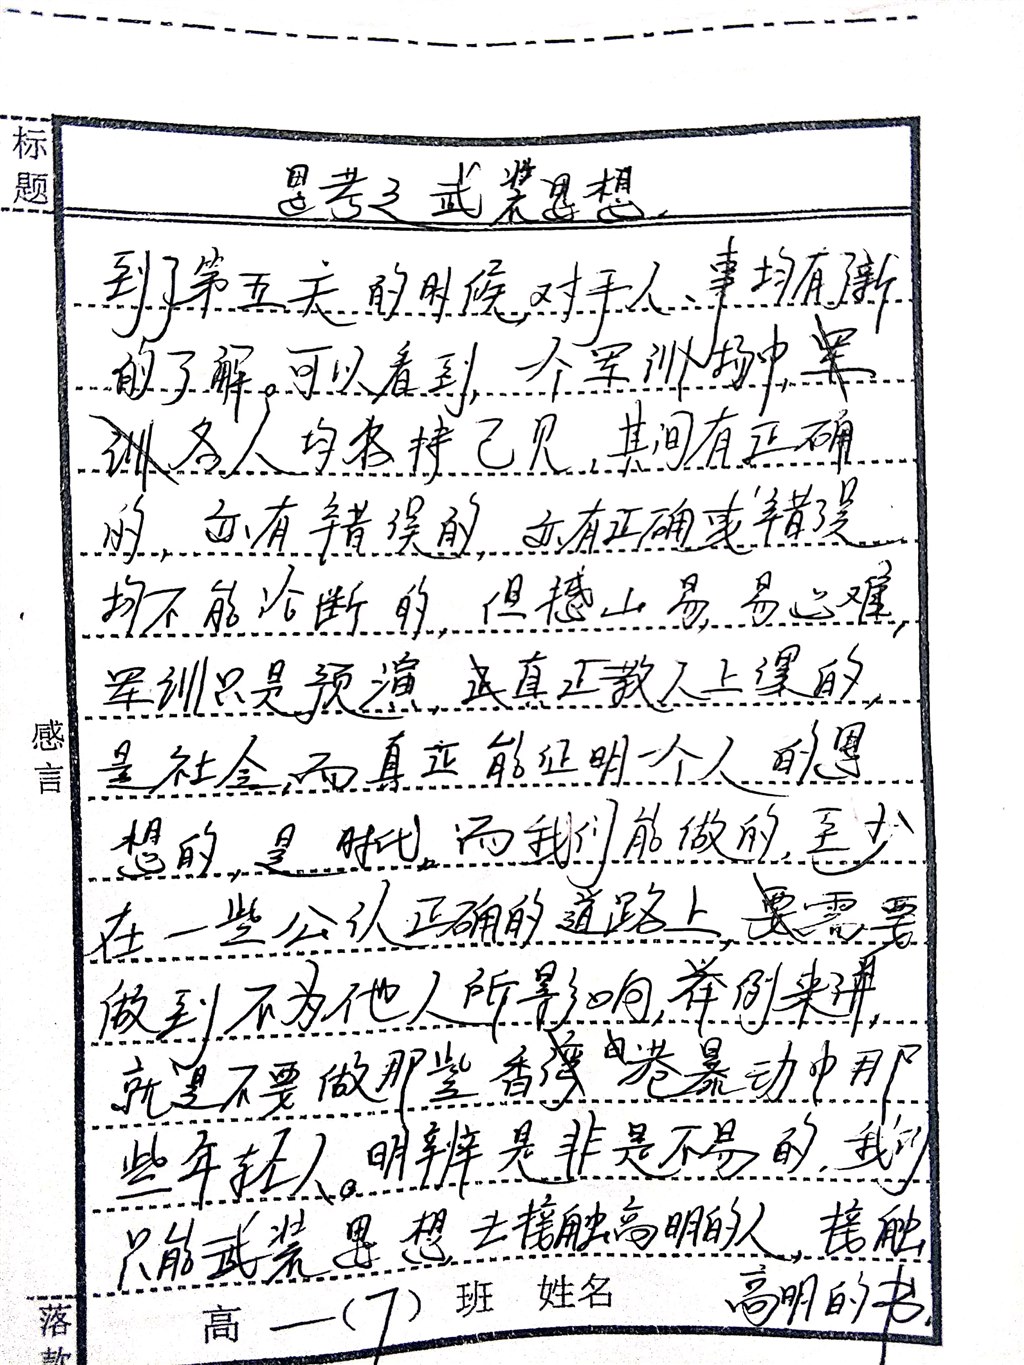 标题
思考之武装思想.
到了第五天的时候,对于人、事均有了新
的了解。可以看到,一个军训场中,
各人均各持己见,其间有正确
的,亦有错误的,亦有正确或错误
均不能诊断的,但撼山易,易心难,
军训只是预演,或真正教人上课的,
是社会,而真正能证明一个人的思
想的,是时代。而我们能做的,至少
在一些公认正确的道路上,需要
做到不为他人所影响,举例来讲,
就是不要做那些香港暴动中那
些年轻人。明辨是非是不易的,我们
只能武装思想,去接触高明的人,接触
高明的书.
感言
高一(7)班 姓名
落款